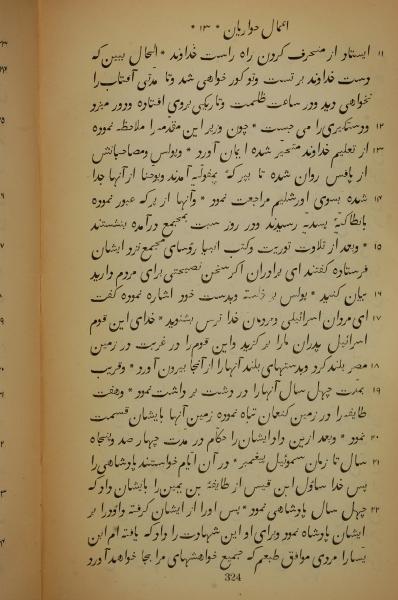 اعمال حواریان * ۱۳ *
۱۱ ایستاد از منحرف کردن راه راست خداوند * الحال ببین که
دست خداوند بر تست و تو کور خواهی شد و تا مدتی آفتاب را
نخواهی دید و در ساعت ظلمت و تاریکی بروی افتاده و دور میزد
۱۲ و دستگیری را می جست * چون وزیر این مقدمه را ملاحظه نموده
۱۳ از تعلیم خداوند متحیر شده ایمان آورد * و پولس و مصاحبانش
از پافس روان شده تا بپرکه پمفولیه آمدند و یوحنا از آنها جدا
۱۴ شده بسوی اورشلیم مراجعت نمود * و آنها از پرکه عبور نموده
بانطاکیه پسدیه رسیدند و در روز سبت بمجمع درآمده بنشستند
۱۵ * و بعد از تلاوت توریت و کتب انبیا رؤسای مجمع نزد ایشان
فرستاده گفتند ای برادران اگر سخن نصیحتی برای مردم دارید
۱۶ بیان کنید * پولس برخاسته و بدست خود اشاره نموده گفت
۱۷ ای مردان اسرائیلی و مردمان خدا ترس بشنوید * خدای این قوم
اسرائیل پدران ما را برگزید و این قوم را در غربت در زمین
۱۸ مصر بلند کرد و بدستهای بلند آنها را از آنجا بیرون آورد * و قریب
۱۹ بمدت چهل سال آنها را در دشت برداشت نمود * و هفت
طایفه را در زمین کنعان تباه نموده زمین آنها بایشان قسمت
۲۰ نمود * و بعد ازین داد ایشان را حکام در مدت چهار صد و پنجاه
۲۱ سال تا زمان سموئیل پیغمبر * در آن ایام خواستند پادشاهی را
پس خدا ساؤل ابن قیس از طایفهٔ بن یمین را بایشان داد که
۲۲ چهل سال پادشاهی نمود * پس او را از ایشان گرفته داؤد را بر
ایشان پادشاه نمود و برای او این شهادت را داد که یافته ام ابن
یسا را مردی موافق طبعم که جمیع خواهشهای مرا بجا خواهد آورد
324